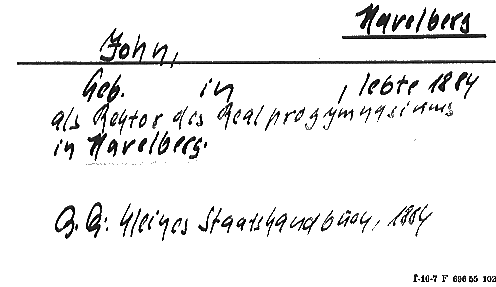 Havelberg
John,
Geb. in , lebte 1884
als Rektor des Realprogymnasiums
in Havelberg.
Q. Q: Kleines Staatshandbuch, 1884
I-16-7 F 696 55 103